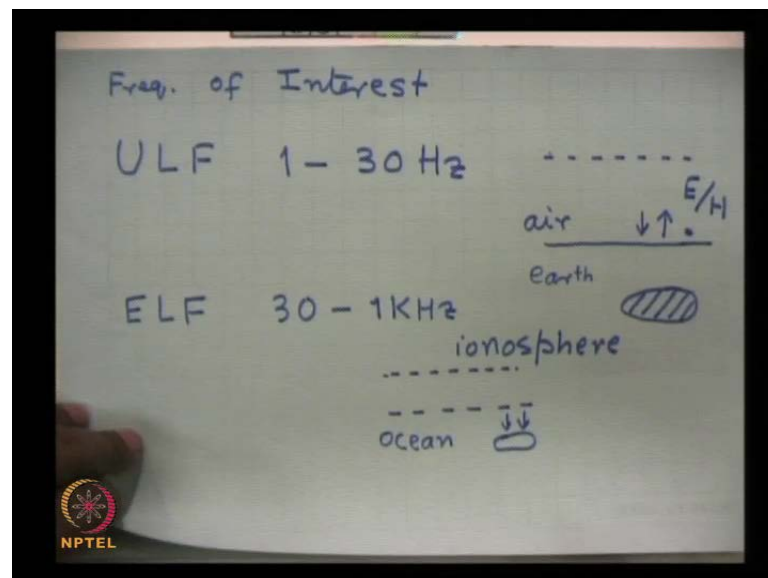 Freq. of Interest
ULF 1 - 30 Hz
E/H
air
earth
ELF 30 - 1KHz
ionosphere
ocean
NPTEL